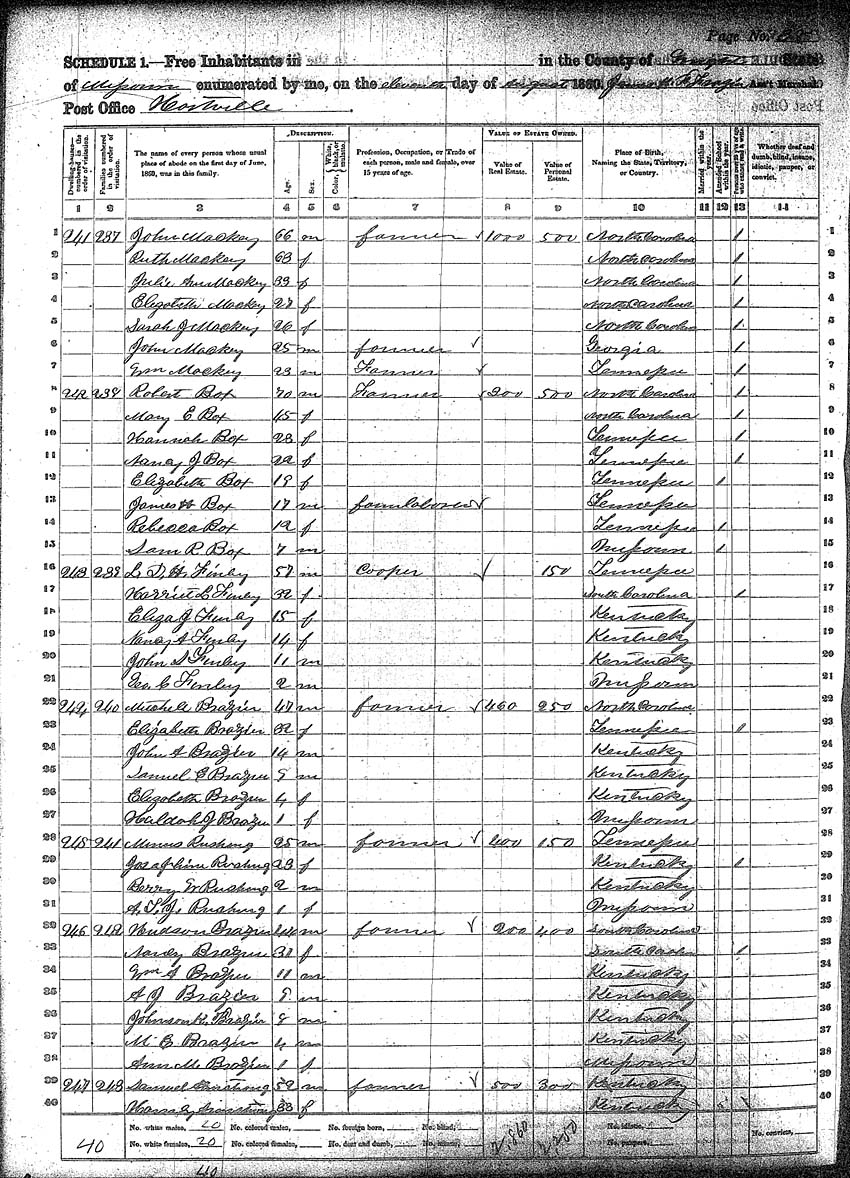 Page No.
SCHEDULE 1.—Free Inhabitants in in the County of State
of Missouri enumerated by me, on the eleventh day of August 1860. Ass't Marshal.
Post Office Hartville
DESCRIPTION. VALUE OF ESTATE OWNED.
Dwelling-houses—numbered in the order of visitation. Families numbered in the order of visitation. The name of every person whose usual place of abode on the first day of June, 1860, was in this family. Age. Sex. Color, White, black, or mulatto. Profession, Occupation, or Trade of each person, male and female, over 15 years of age. Value of Real Estate. Value of Personal Estate. Place of Birth, Naming the State, Territory, or Country. Married within the year. Attended School within the year. Whether deaf and dumb, blind, insane, idiotic, pauper, or convict.
1 2 3 4 5 6 7 8 9 10 11 12 13 14
1 241 237 John Mackey 66 m farmer 1000 500 North Carolina 1 1
2 Ruth Mackey 63 f North Carolina 1 2
3 Julie Ann Mackey 39 f North Carolina 1 3
4 Elizabeth Mackey 27 f North Carolina 1 4
5 Sarah J Mackey 26 f North Carolina 1 5
6 John Mackey 25 m farmer Georgia 1 6
7 Wm Mackey 23 m Farmer Tennessee 1 7
8 242 238 Robert Box 70 m Farmer 200 500 North Carolina 1 8
9 Mary E Box 45 f North Carolina 1 9
10 Hannah Box 23 f Tennessee 1 10
11 Nancy J Box 22 f Tennessee 1 11
12 Elizabeth Box 19 f Tennessee 1 12
13 James H Box 17 m farm laborer Tennessee 13
14 Rebecca Box 12 f Tennessee 1 14
15 Sam R. Box 7 m Missouri 1 15
16 243 239 L. D. H. Finley 57 m Cooper 150 Tennessee 16
17 Harriet L Finley 32 f South Carolina 1 17
18 Eliza J Finley 15 f Kentucky 18
19 Nancy A Finley 14 f Kentucky 19
20 John S Finley 11 m Kentucky 20
21 Geo. C Finley 2 m Missouri 21
22 244 240 Mitchell Brazier 47 m farmer 460 250 North Carolina 22
23 Elizabeth Brazier 32 f Tennessee 1 23
24 John A Brazier 14 m Kentucky 24
25 Samuel E Brazier 9 m Kentucky 25
26 Elizabeth Brazier 4 f Kentucky 26
27 Huldah J Brazier 1 f Missouri 27
28 245 241 Minus Rushing 25 m farmer 400 150 Tennessee 28
29 Josaphine Rushing 23 f Kentucky 1 29
30 Berry W Rushing 2 m Kentucky 30
31 Rushing 1 f Missouri 31
32 246 242 Hudson Brazier 44 m farmer 200 400 South Carolina 32
33 Nancy Brazier 31 f South Carolina 1 33
34 Wm A Brazier 11 m Kentucky 34
35 A J Brazier 9 m Kentucky 35
36 Johnson K. Brazier 8 m Kentucky 36
37 M E Brazier 4 m Kentucky 37
38 Ann M. Brazier 1 f Missouri 38
39 247 243 Samuel Armstrong 52 m farmer 500 300 Kentucky 39
40 Armstrong 33 f Kentucky 40
40 No. white males, 20 No. colored males, No. foreign born, No. blind, 2,860 2,200 No. idiotic, No. convicts,
No. white females, 20 No. colored females, No. deaf and dumb, No. insane, No. paupers,
40